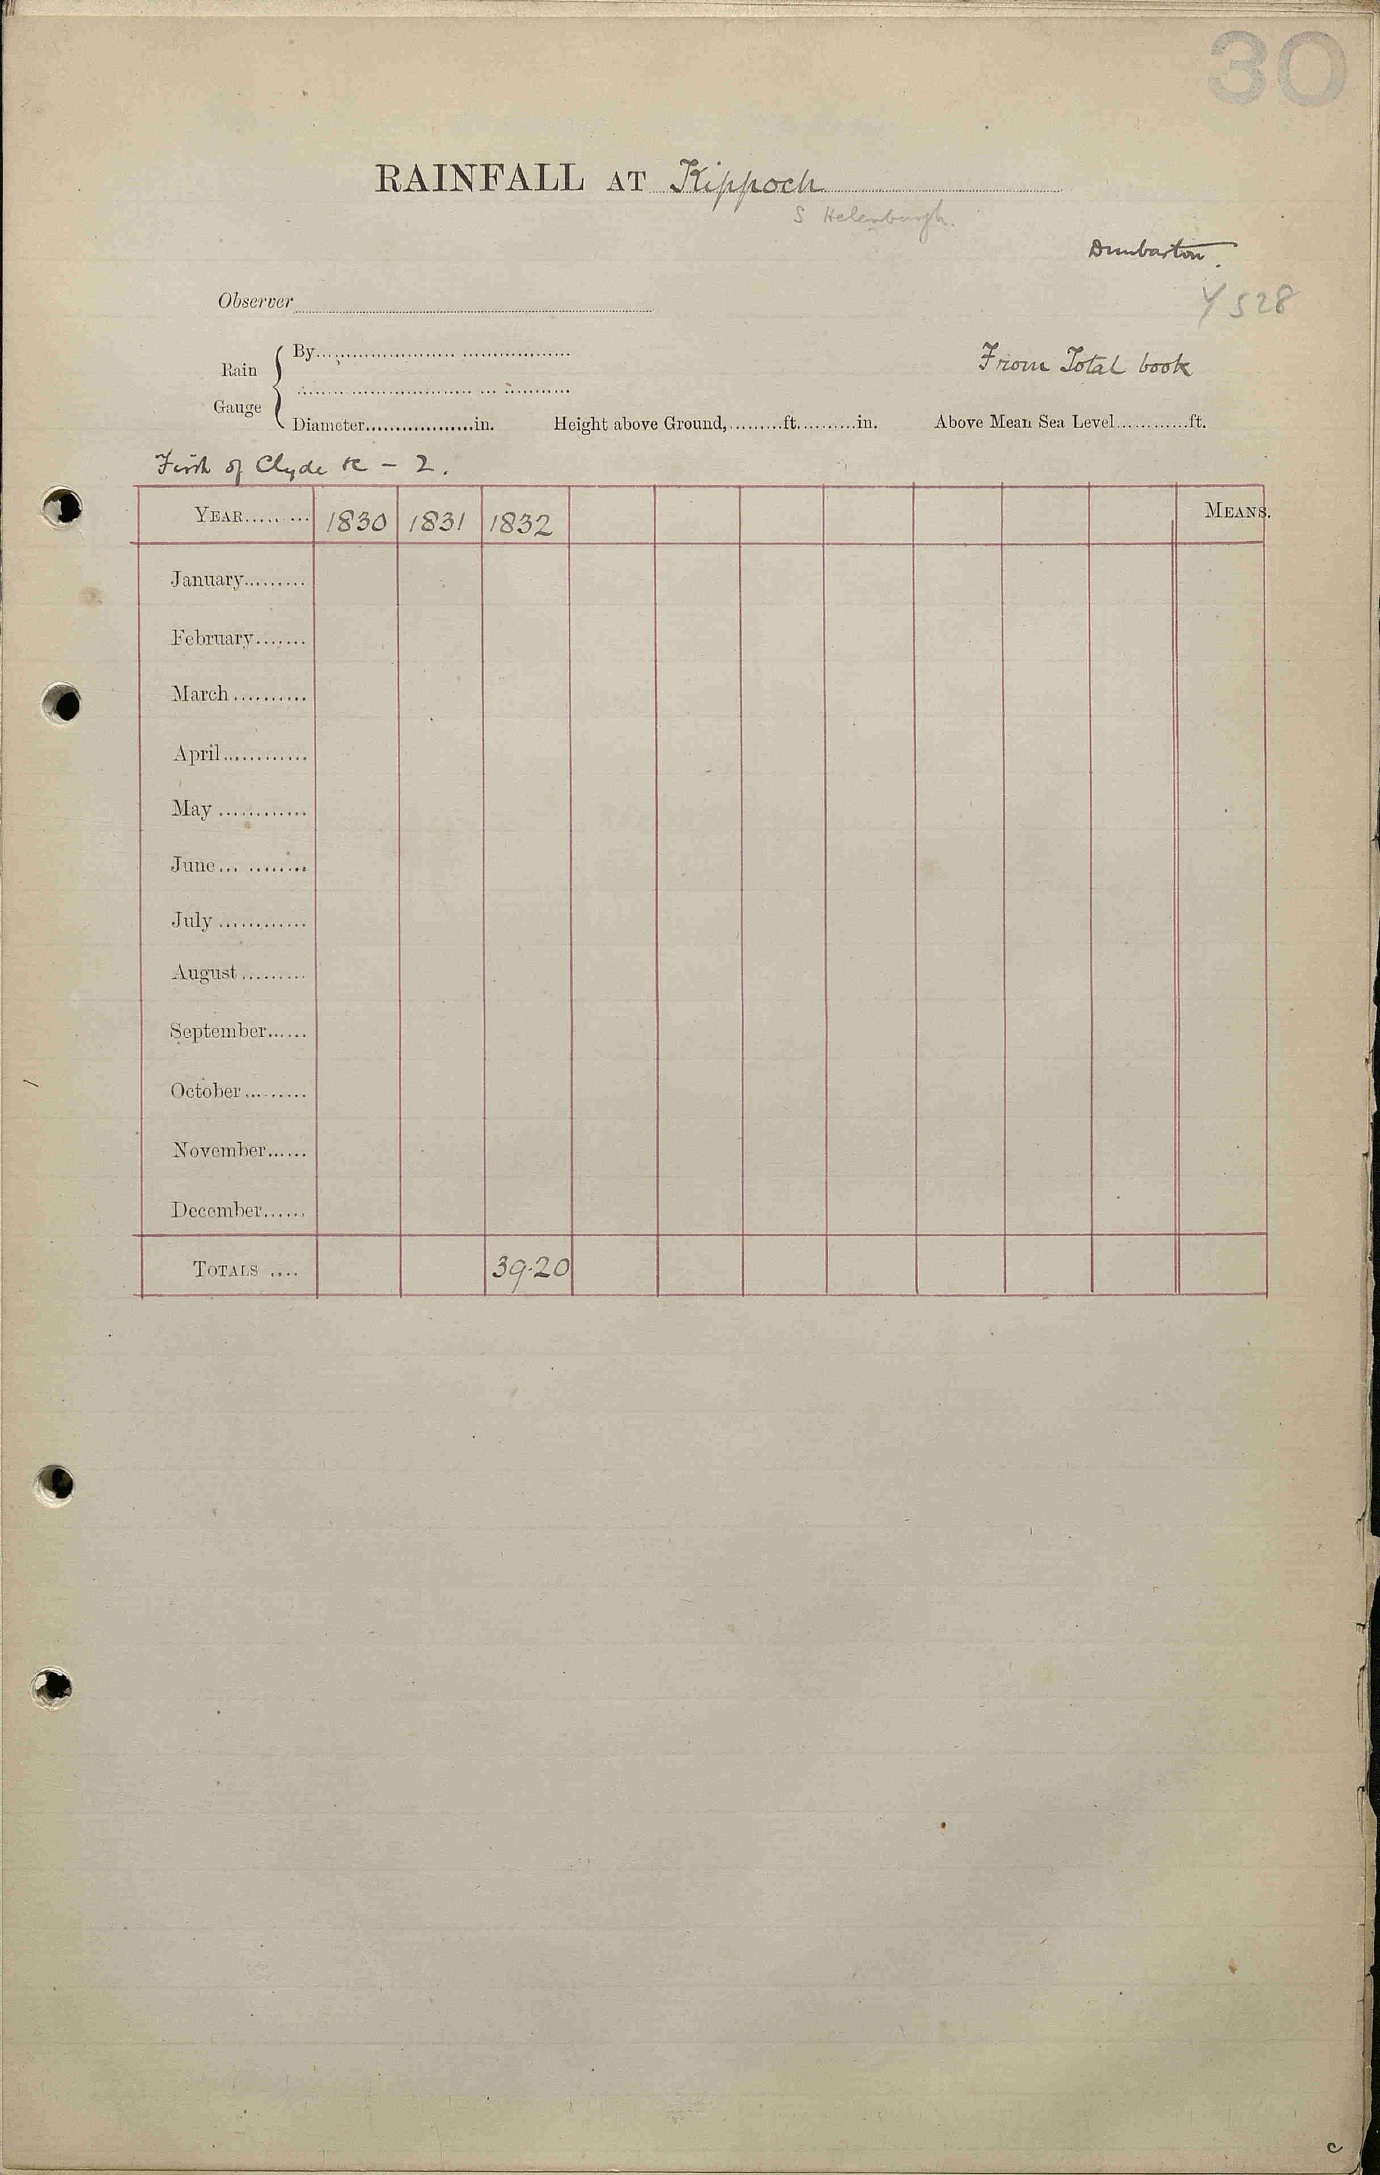 30
RAINFALL AT Kippoch
S Helensburgh.
Dumbarton.
Observer
Y 528
Rain Gauge
By
From Total book
Diameter..................in. Height above Ground,.........ft..........in. Above Mean Sea Level............ft.
Firth of Clyde &c - 2.
YEAR........ 1830 1831 1832 MEANS.
January.........
February.......
March..........
April............
May............
June... ........
July............
August.........
September......
October.........
November......
December......
TOTALS .... 39.20
c